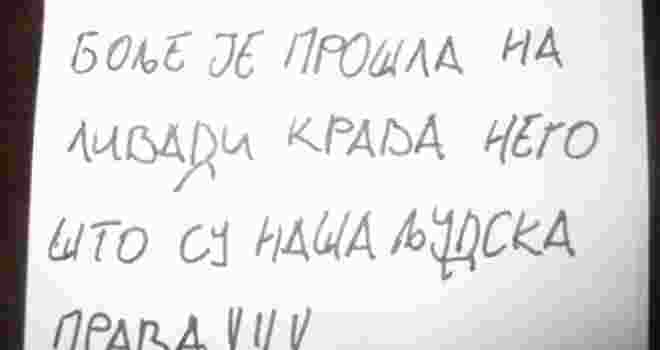 БОЉЕ ЈЕ ПРОШЛА НА
ЛИВАДИ КРАВА НЕГО
ШТО СУ НАША ЉУДСКА
ПРАВА!!!